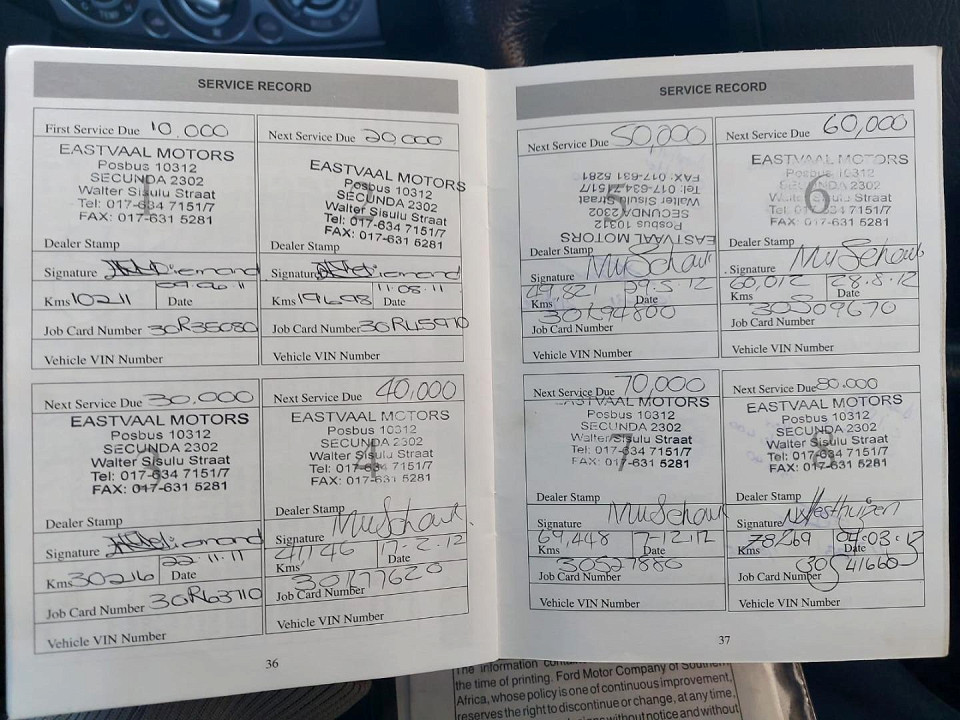 TEMP
SERVICE RECORD
First Service Due 10,000
EASTVAAL MOTORS
Posbus 10312
SECUNDA 2302
Walter Sisulu Straat
Tel: 017-634 7151/7
FAX: 017-631 5281
1
Dealer Stamp
Signature Diemond
Kms 10211 Date 09.06.11
Job Card Number 30R35080
Vehicle VIN Number
Next Service Due 20,000
EASTVAAL MOTORS
Posbus 10312
SECUNDA 2302
Walter Sisulu Straat
Tel: 017-634 7151/7
FAX: 017-631 5281
2
Dealer Stamp
Signature Diemond
Kms 19698 Date 11.08.11
Job Card Number 30R45910
Vehicle VIN Number
Next Service Due 30,000
EASTVAAL MOTORS
Posbus 10312
SECUNDA 2302
Walter Sisulu Straat
Tel: 017-634 7151/7
FAX: 017-631 5281
3
Dealer Stamp
Signature Diemond
Kms 30216 Date 22.11.11
Job Card Number 30R63710
Vehicle VIN Number
Next Service Due 40,000
EASTVAAL MOTORS
Posbus 10312
SECUNDA 2302
Walter Sisulu Straat
Tel: 017-634 7151/7
FAX: 017-631 5281
4
Dealer Stamp
Signature
Kms Date 17.2.12
Job Card Number 30R77620
Vehicle VIN Number
36
SERVICE RECORD
Next Service Due 50,000
EASTVAAL MOTORS
Posbus 10312
SECUNDA 2302
Walter Sisulu Straat
Tel: 017-634 7151/7
FAX: 017-631 5281
5
Dealer Stamp
Signature
Kms 49,821 Date 29.5.12
Job Card Number 30R94800
Vehicle VIN Number
Next Service Due 60,000
EASTVAAL MOTORS
Posbus 10312
SECUNDA 2302
Walter Sisulu Straat
Tel: 017-634 7151/7
FAX: 017-631 5281
6
Dealer Stamp
Signature
Kms 60,012 Date 28.8.12
Job Card Number 30S09670
Vehicle VIN Number
Next Service Due 70,000
EASTVAAL MOTORS
Posbus 10312
SECUNDA 2302
Walter Sisulu Straat
Tel: 017-634 7151/7
FAX: 017-631 5281
7
Dealer Stamp
Signature
Kms 69,448 Date 7-12.12
Job Card Number 30S27880
Vehicle VIN Number
Next Service Due 80.000
EASTVAAL MOTORS
Posbus 10312
SECUNDA 2302
Walter Sisulu Straat
Tel: 017-634 7151/7
FAX: 017-631 5281
8
Dealer Stamp
Signature
Kms 78269 Date 04.03.13
Job Card Number 30S41660
Vehicle VIN Number
37
The information
the time of printing. Ford Motor Company of Southern
Africa, whose policy is one of continuous improvement,
reserves the right to discontinue or change, at any time,
without notice and without